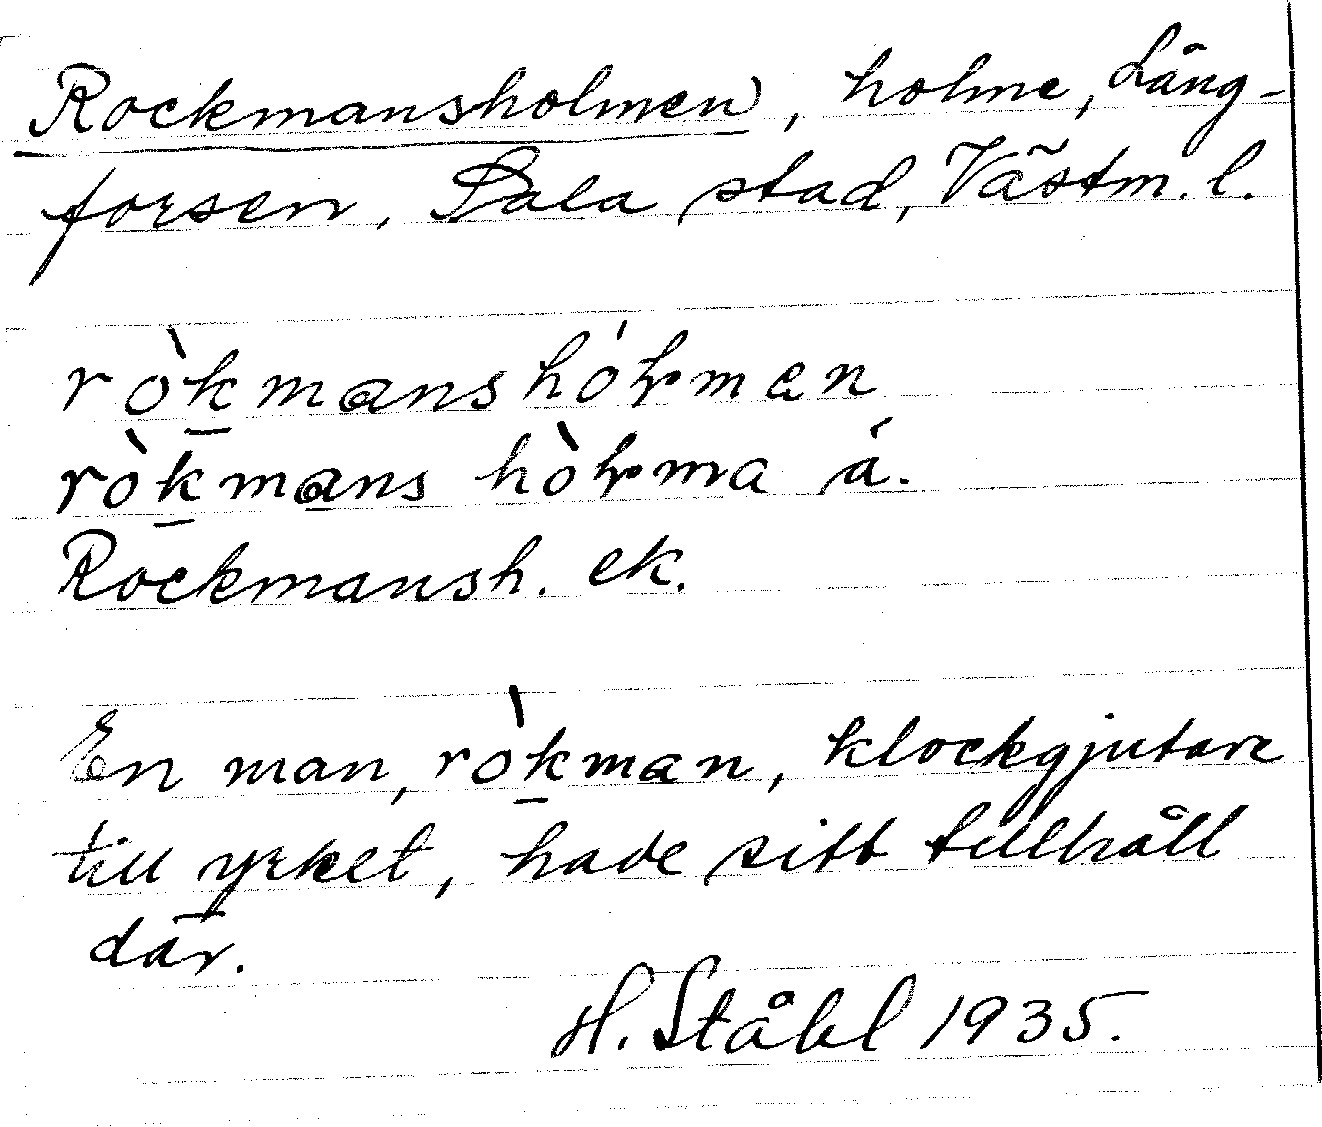 Rockmansholmen, holme, Lång-
forsen, Sala stad, Västm. l.
ròkmanshóḷman
ròkmans hòḷma á.
Rockmansh. ek.
En man, ròkman, klockgjutare
till yrket, hade sitt tillhåll
där.
H. Ståhl 1935.